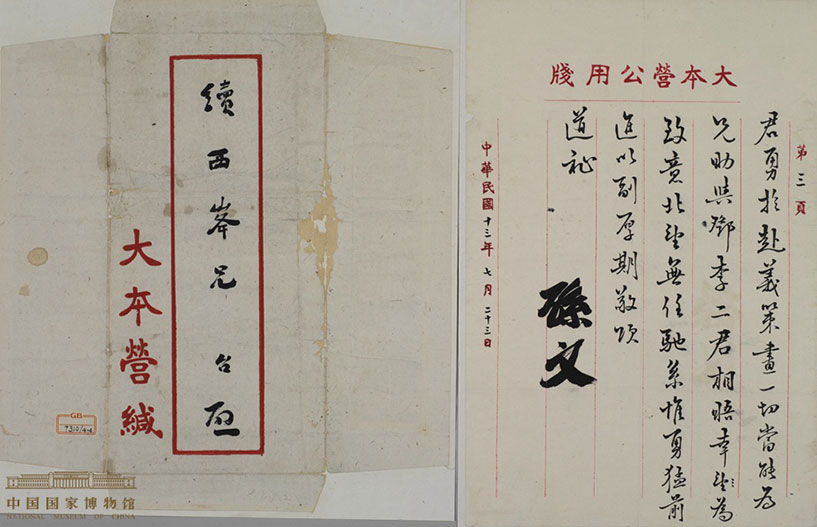 續西峯兄台啟
大本營緘
GB
中国国家博物馆
NATIONAL MUSEUM OF CHINA
大本營公用牋
第三頁
君勇於赴義策畫一切當能為
兄助與鄧李二君相晤幸望為
致意北望無任馳系惟勇猛前
進以副厚期敬頌
道祉
孫文
中華民國十三年七月二十三日